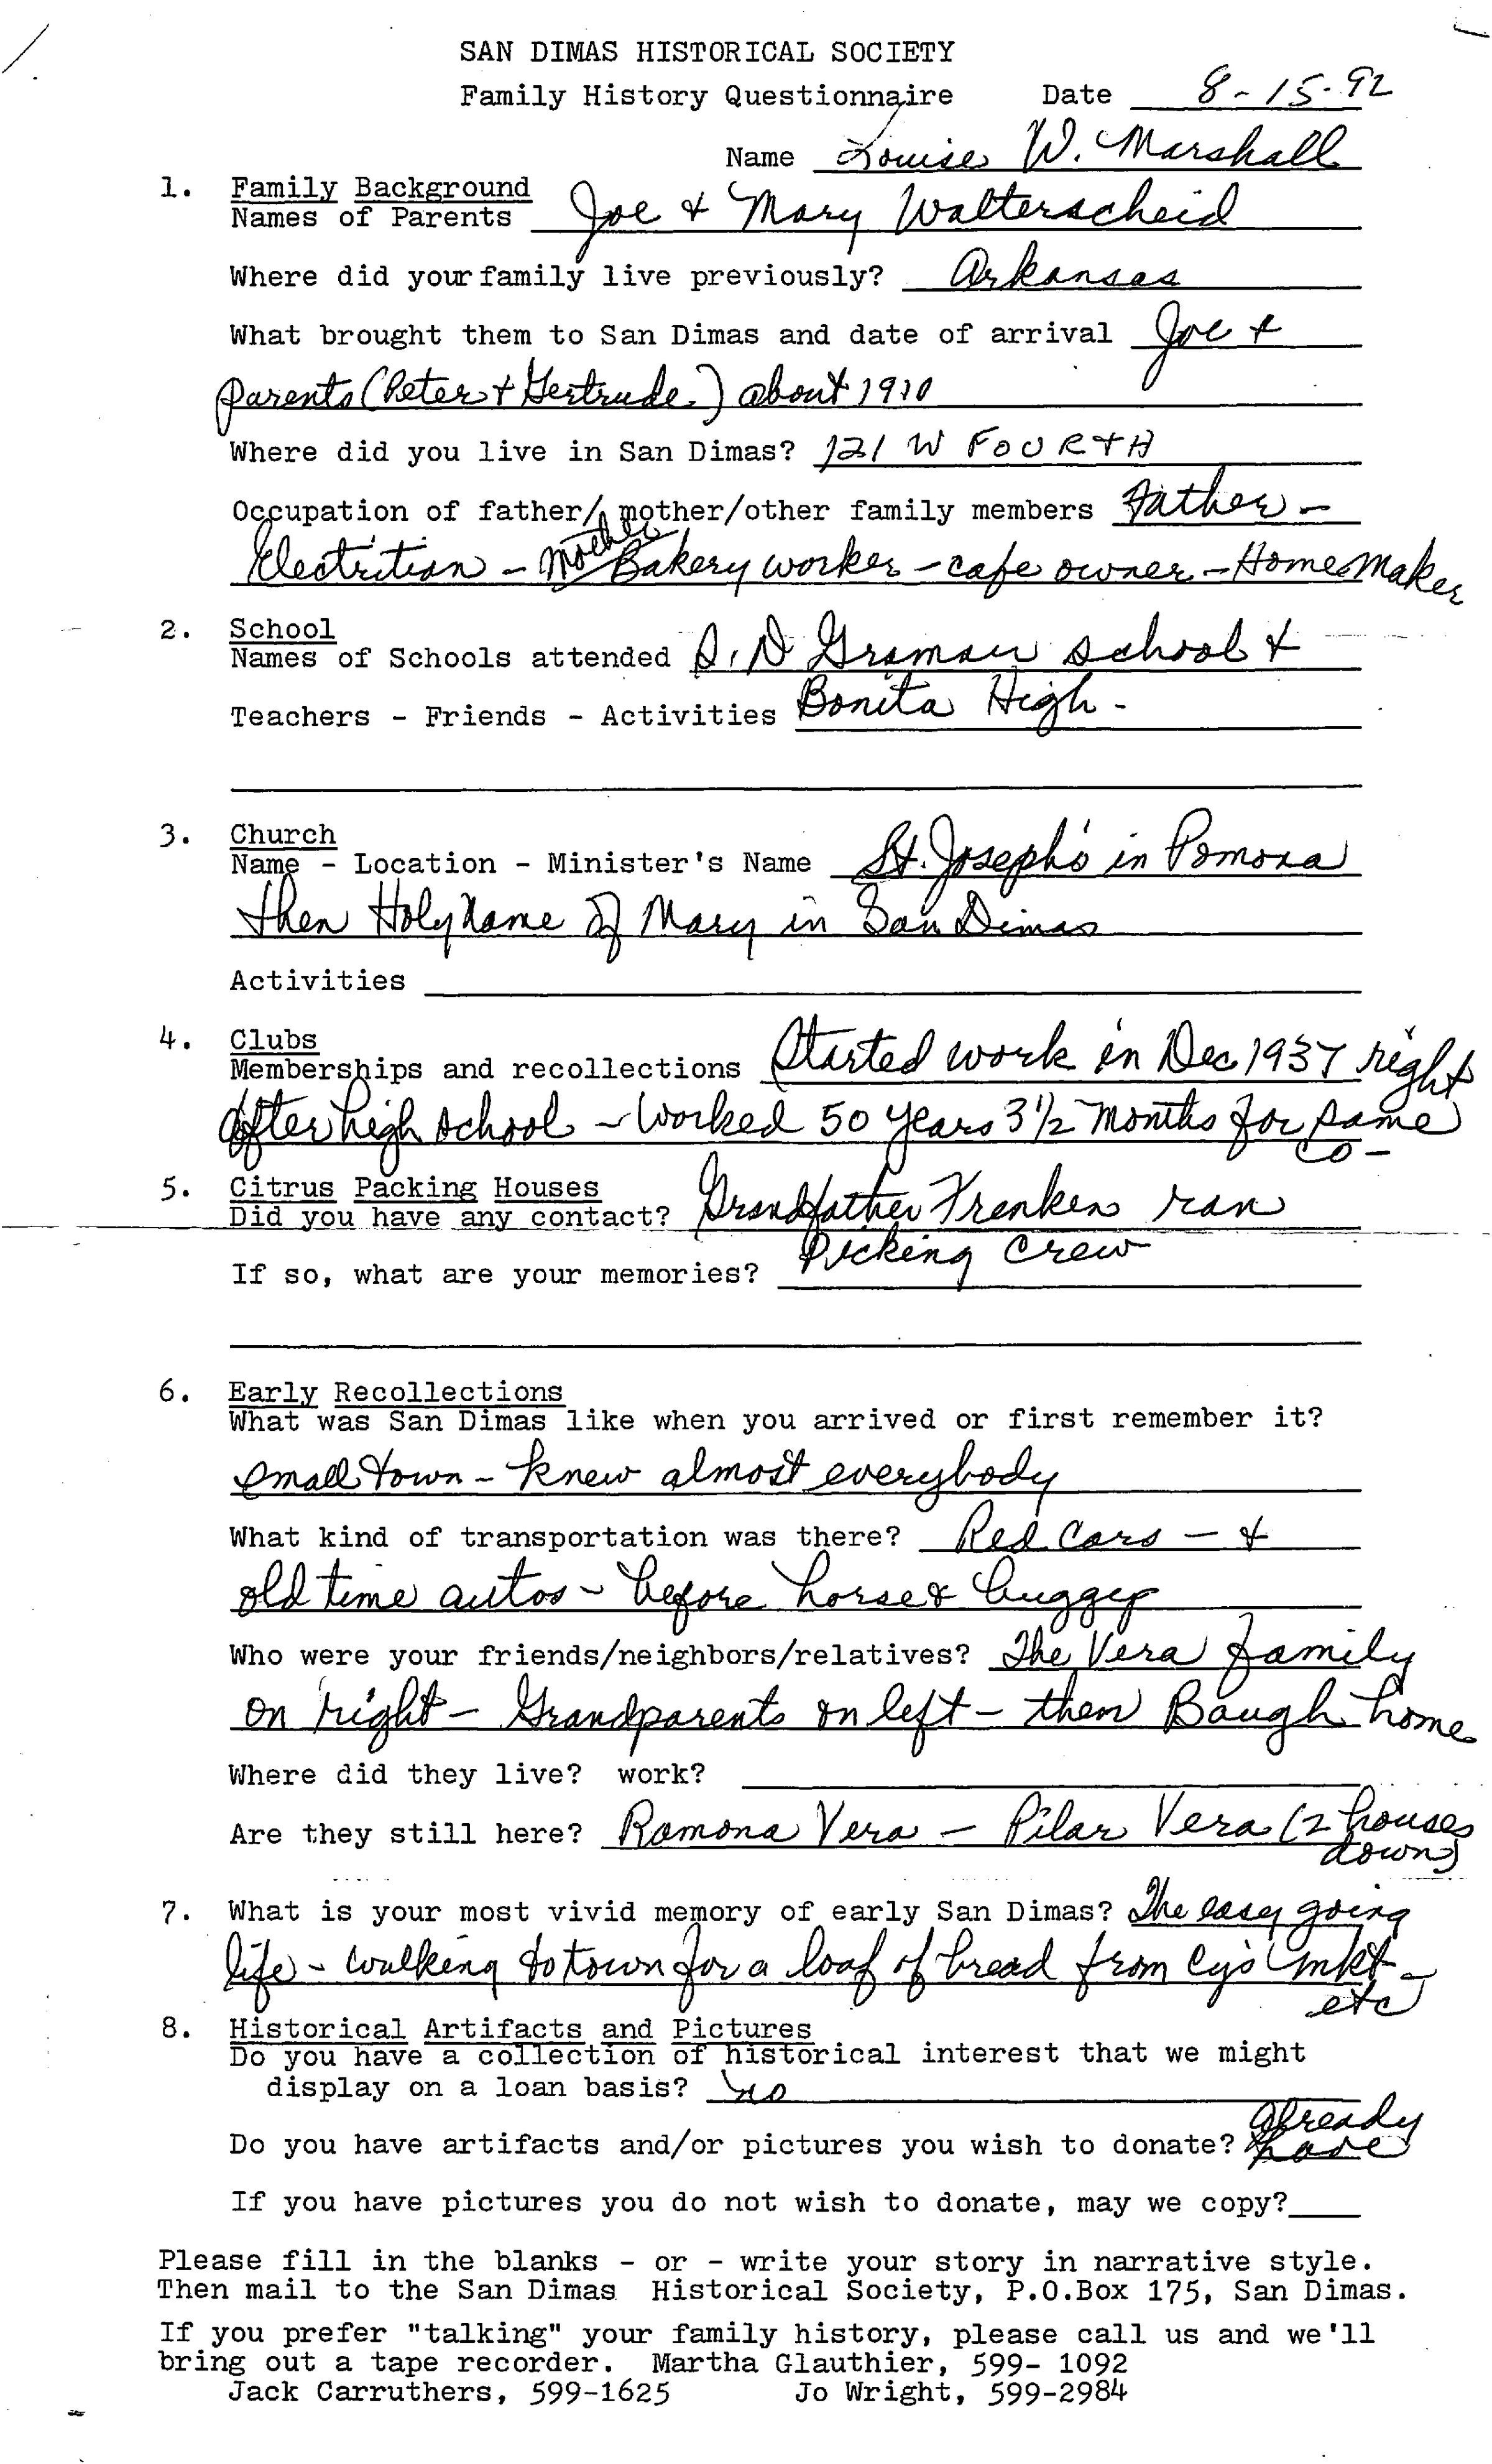 SAN DIMAS HISTORICAL SOCIETY
Family History Questionnaire Date 8-15-92
Name Louise W. Marshall
1. Family Background
Names of Parents Joe & Mary Walterscheid
Where did your family live previously? Arkansas
What brought them to San Dimas and date of arrival Joe &
parents (Peter & Gertrude) about 1910
Where did you live in San Dimas? 121 W FOURTH
Occupation of father/mother/other family members Father -
Electritian - Mother Bakery worker - cafe owner - Homemaker
2. School
Names of Schools attended S.D Gramar school &
Teachers - Friends - Activities Bonita High -
3. Church
Name - Location - Minister's Name St. Joseph's in Pomona
then Holy Name of Mary in San Dimas
Activities
4. Clubs
Memberships and recollections Started work in Dec 1937 right
after high school - Worked 50 years 3 1/2 months for same
co -
5. Citrus Packing Houses
Did you have any contact? Grandfather Franken ran
Picking Crew
If so, what are your memories?
6. Early Recollections
What was San Dimas like when you arrived or first remember it?
small town - knew almost everybody
What kind of transportation was there? Red Cars - &
old time autos - before horse & buggey
Who were your friends/neighbors/relatives? The Vera family
on right - Grandparents on left - then Baugh home
Where did they live? work?
Are they still here? Ramona Vera - Pilar Vera (2 houses
down)
7. What is your most vivid memory of early San Dimas? The easy going
life - walking to town for a loaf of bread from Cy's mkt -
etc
8. Historical Artifacts and Pictures
Do you have a collection of historical interest that we might
display on a loan basis? no
already
Do you have artifacts and/or pictures you wish to donate? have
If you have pictures you do not wish to donate, may we copy?
Please fill in the blanks - or - write your story in narrative style.
Then mail to the San Dimas Historical Society, P.O.Box 175, San Dimas.
If you prefer "talking" your family history, please call us and we'll
bring out a tape recorder. Martha Glauthier, 599- 1092
Jack Carruthers, 599-1625 Jo Wright, 599-2984